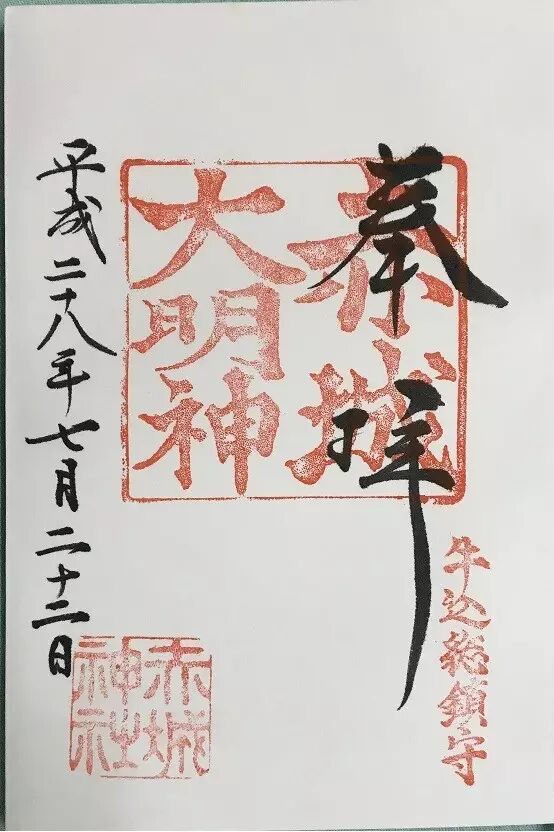 牛込総鎮守
奉拝
赤城
大明神
平成二十八年七月二十二日
赤城
神社